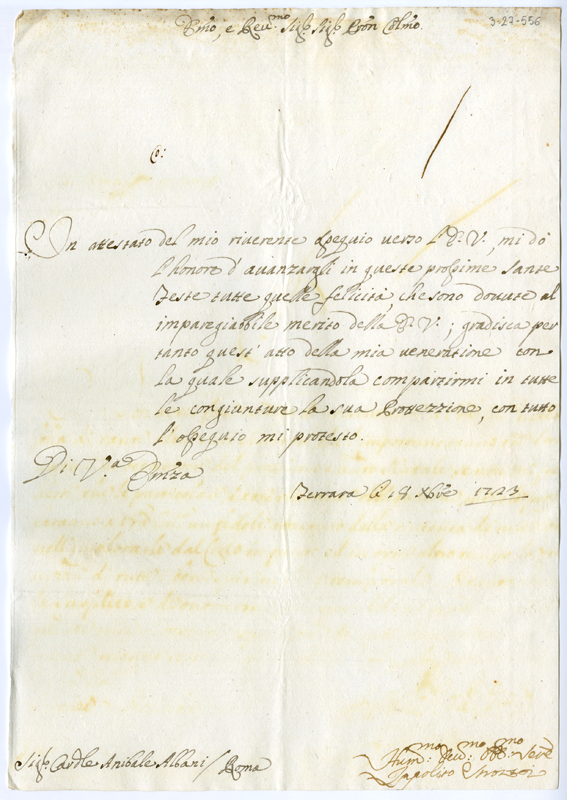 3-27-556
Emo, e Revmo. Sigr. Sigr. Pron Colmo.
In attestato del mio riverente ossequio verso l'E. V., mi dò
l'honore d'avanzargli in queste prossime Sante
Feste tutte quelle fellicità, che sono dovute al
impareggiabile merito della E. V.; gradisca per
tanto quest'atto della mia veneratione con
la quale supplicandola compartirmi in tutte
le congiunture la sua Prottezzione, con tutto
l'ossequio mi protesto.
Di V.a Emza
Ferrara li 18 Xbre 1723
Sigr. Cardle Anibale Albani / Roma
Humo: Devmo: Obbmo: Serve
Ippolito Strozzi